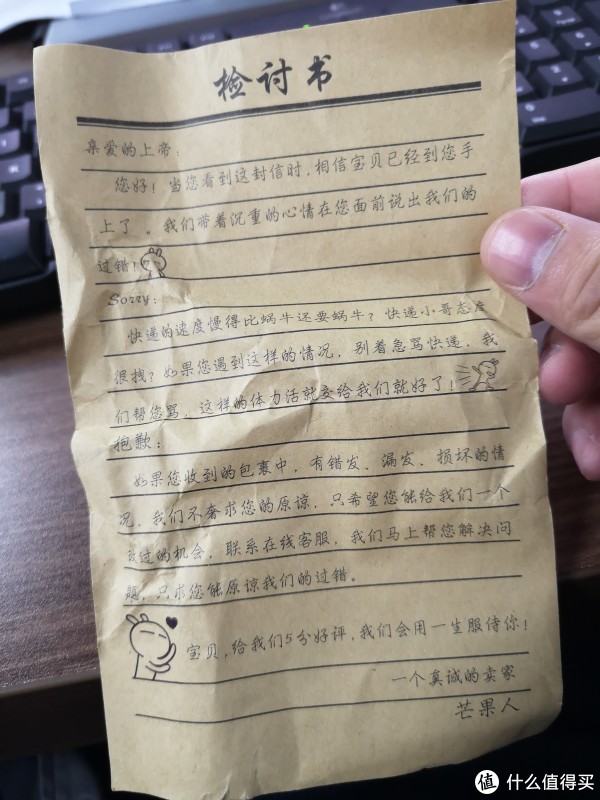 检讨书
亲爱的上帝：
您好！当您看到这封信时，相信宝贝已经到您手
上了。我们带着沉重的心情在您面前说出我们的
过错！
Sorry：
快递的速度慢得比蜗牛还要蜗牛？快递小哥态度
很拽？如果您遇到这样的情况，别着急骂快递，我
们帮您骂，这样的体力活就交给我们就好了！
抱歉：
如果您收到的包裹中，有错发、漏发、损坏的情
况，我们不奢求您的原谅，只希望您能给我们一个
改过的机会，联系在线客服，我们马上帮您解决问
题，只求您能原谅我们的过错。
宝贝，给我们5分好评，我们会用一生服侍你！
一个真诚的卖家
芒果人
值 什么值得买